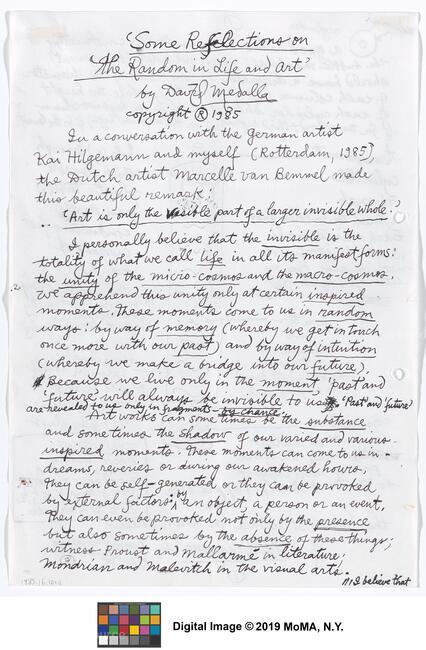 'Some Reflections on
'the Random in Life and Art'
by David Medalla
copyright ® 1985
In a conversation with the German artist
Kai Hilgemann and myself (Rotterdam, 1985),
the Dutch artist Marcelle van Bemmel made
this beautiful remark:
'Art is only the visible part of a larger invisible whole.'
I personally believe that the invisible is the
totality of what we call life in all its manifest forms:
the unity of the micro-cosmos and the macro-cosmos.
We apprehend this unity only at certain inspired
moments. These moments come to us in random
ways: by way of memory (whereby we get in touch
once more with our past) and by way of intuition
(whereby we make a bridge into our future).
Because we live only in the moment, 'past' and
'future' will always be invisible to us. 'Past' and 'future'
are revealed to us only in fragments - by chance.
Art works can some times be the substance
and some times the shadow of our varied and various
inspired moments. These moments can come to us in
dreams, reveries or during our awakened hours.
They can be self-generated or they can be provoked
by external factors: by an object, a person or an event.
They can even be provoked not only by the presence
but also sometimes by the absence of these things;
witness Proust and Mallarmé in literature;
Mondrian and Malevitch in the visual arts.
I believe that
Digital Image © 2019 MoMA, N.Y.